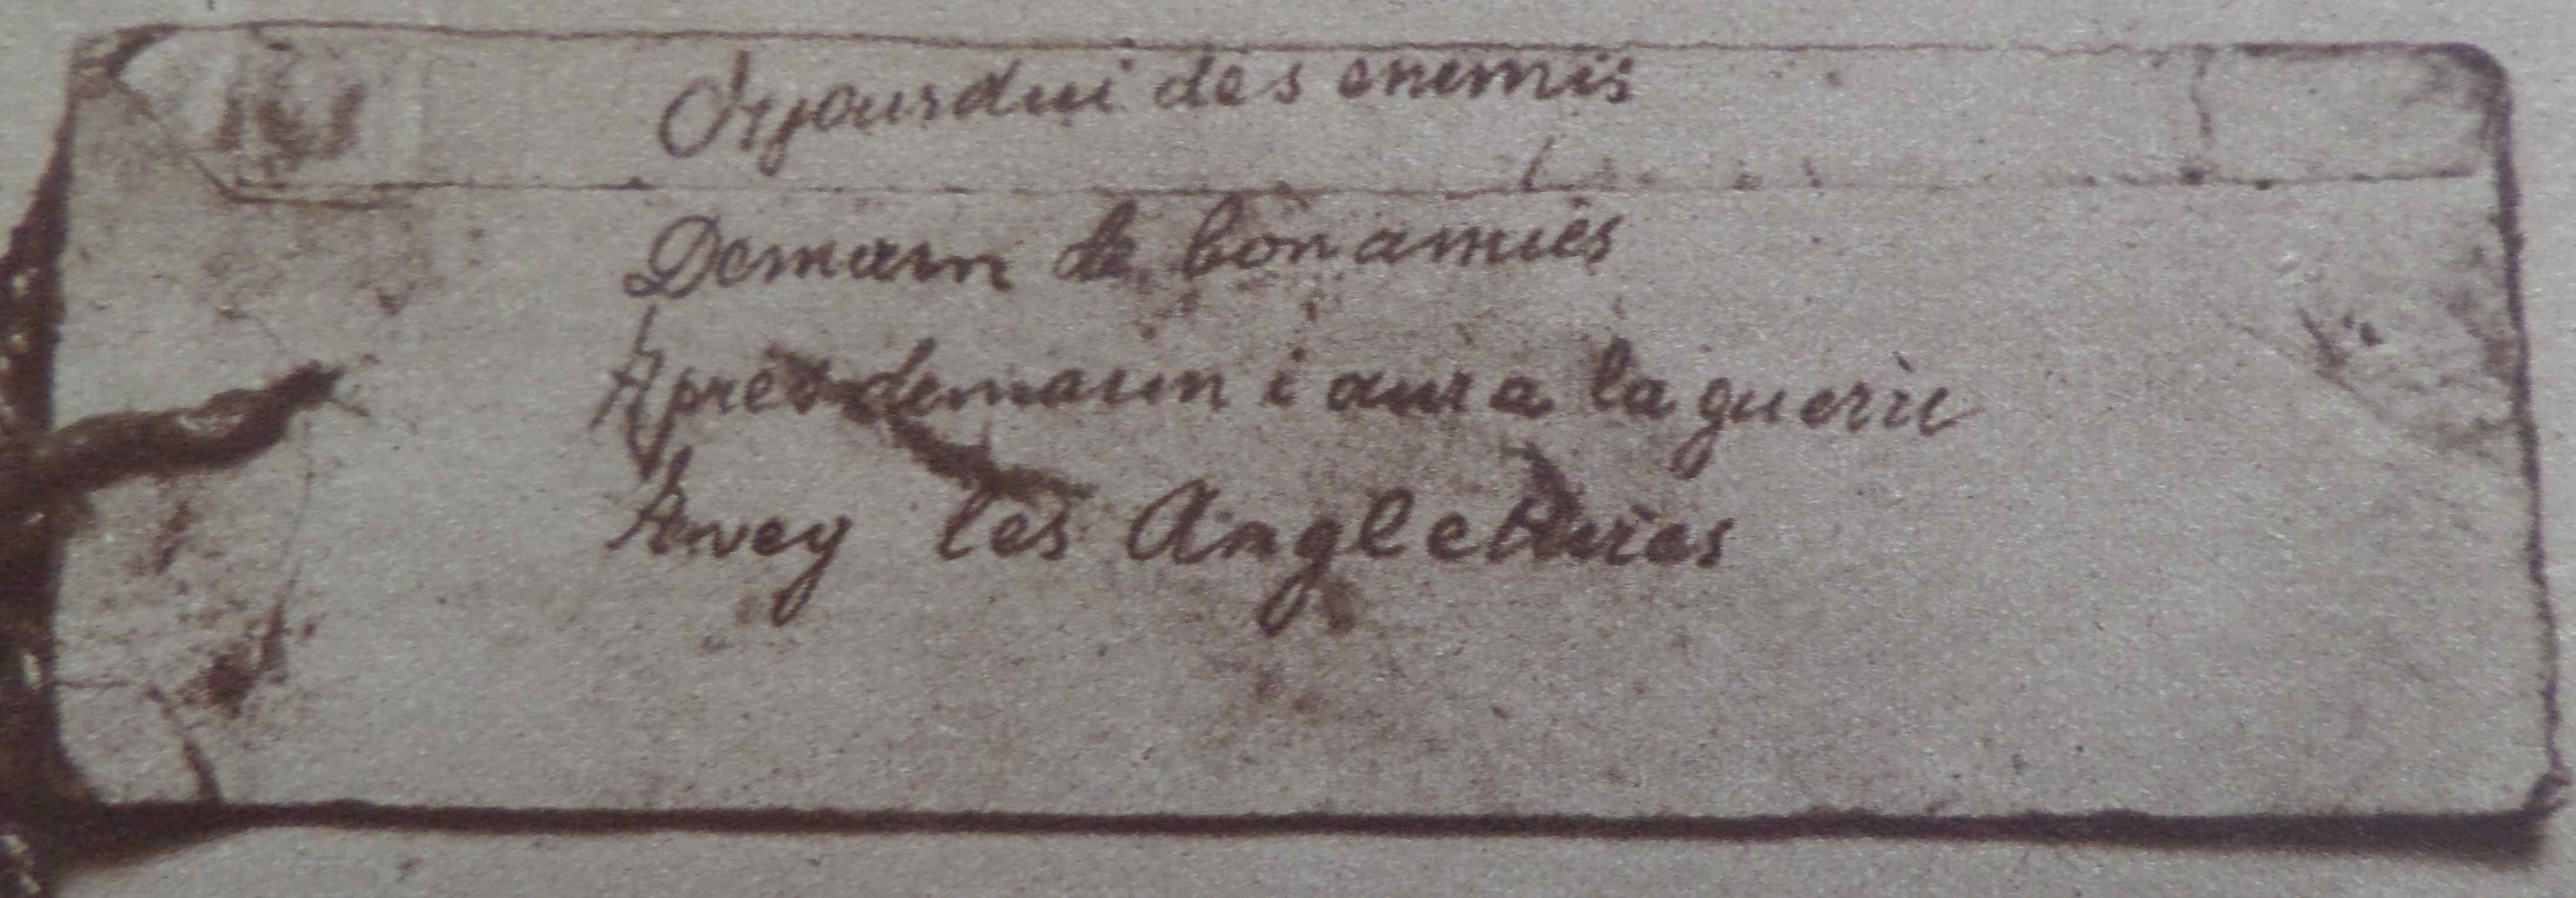 Ojjourdui des enemis
Demain de bon amies
Apres demain i aura la guerie
Avey les Angleteres